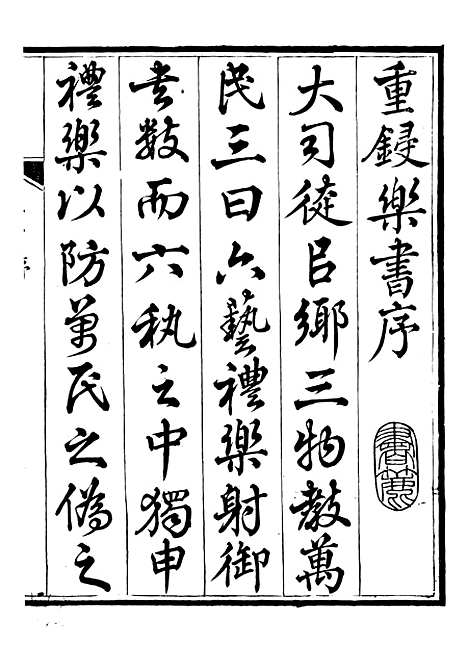 重鋟樂書序
大司徒㠯鄉三物教萬
民三曰六藝禮樂射御
書數而六秇之中獨申
禮樂以防萬民之偽之